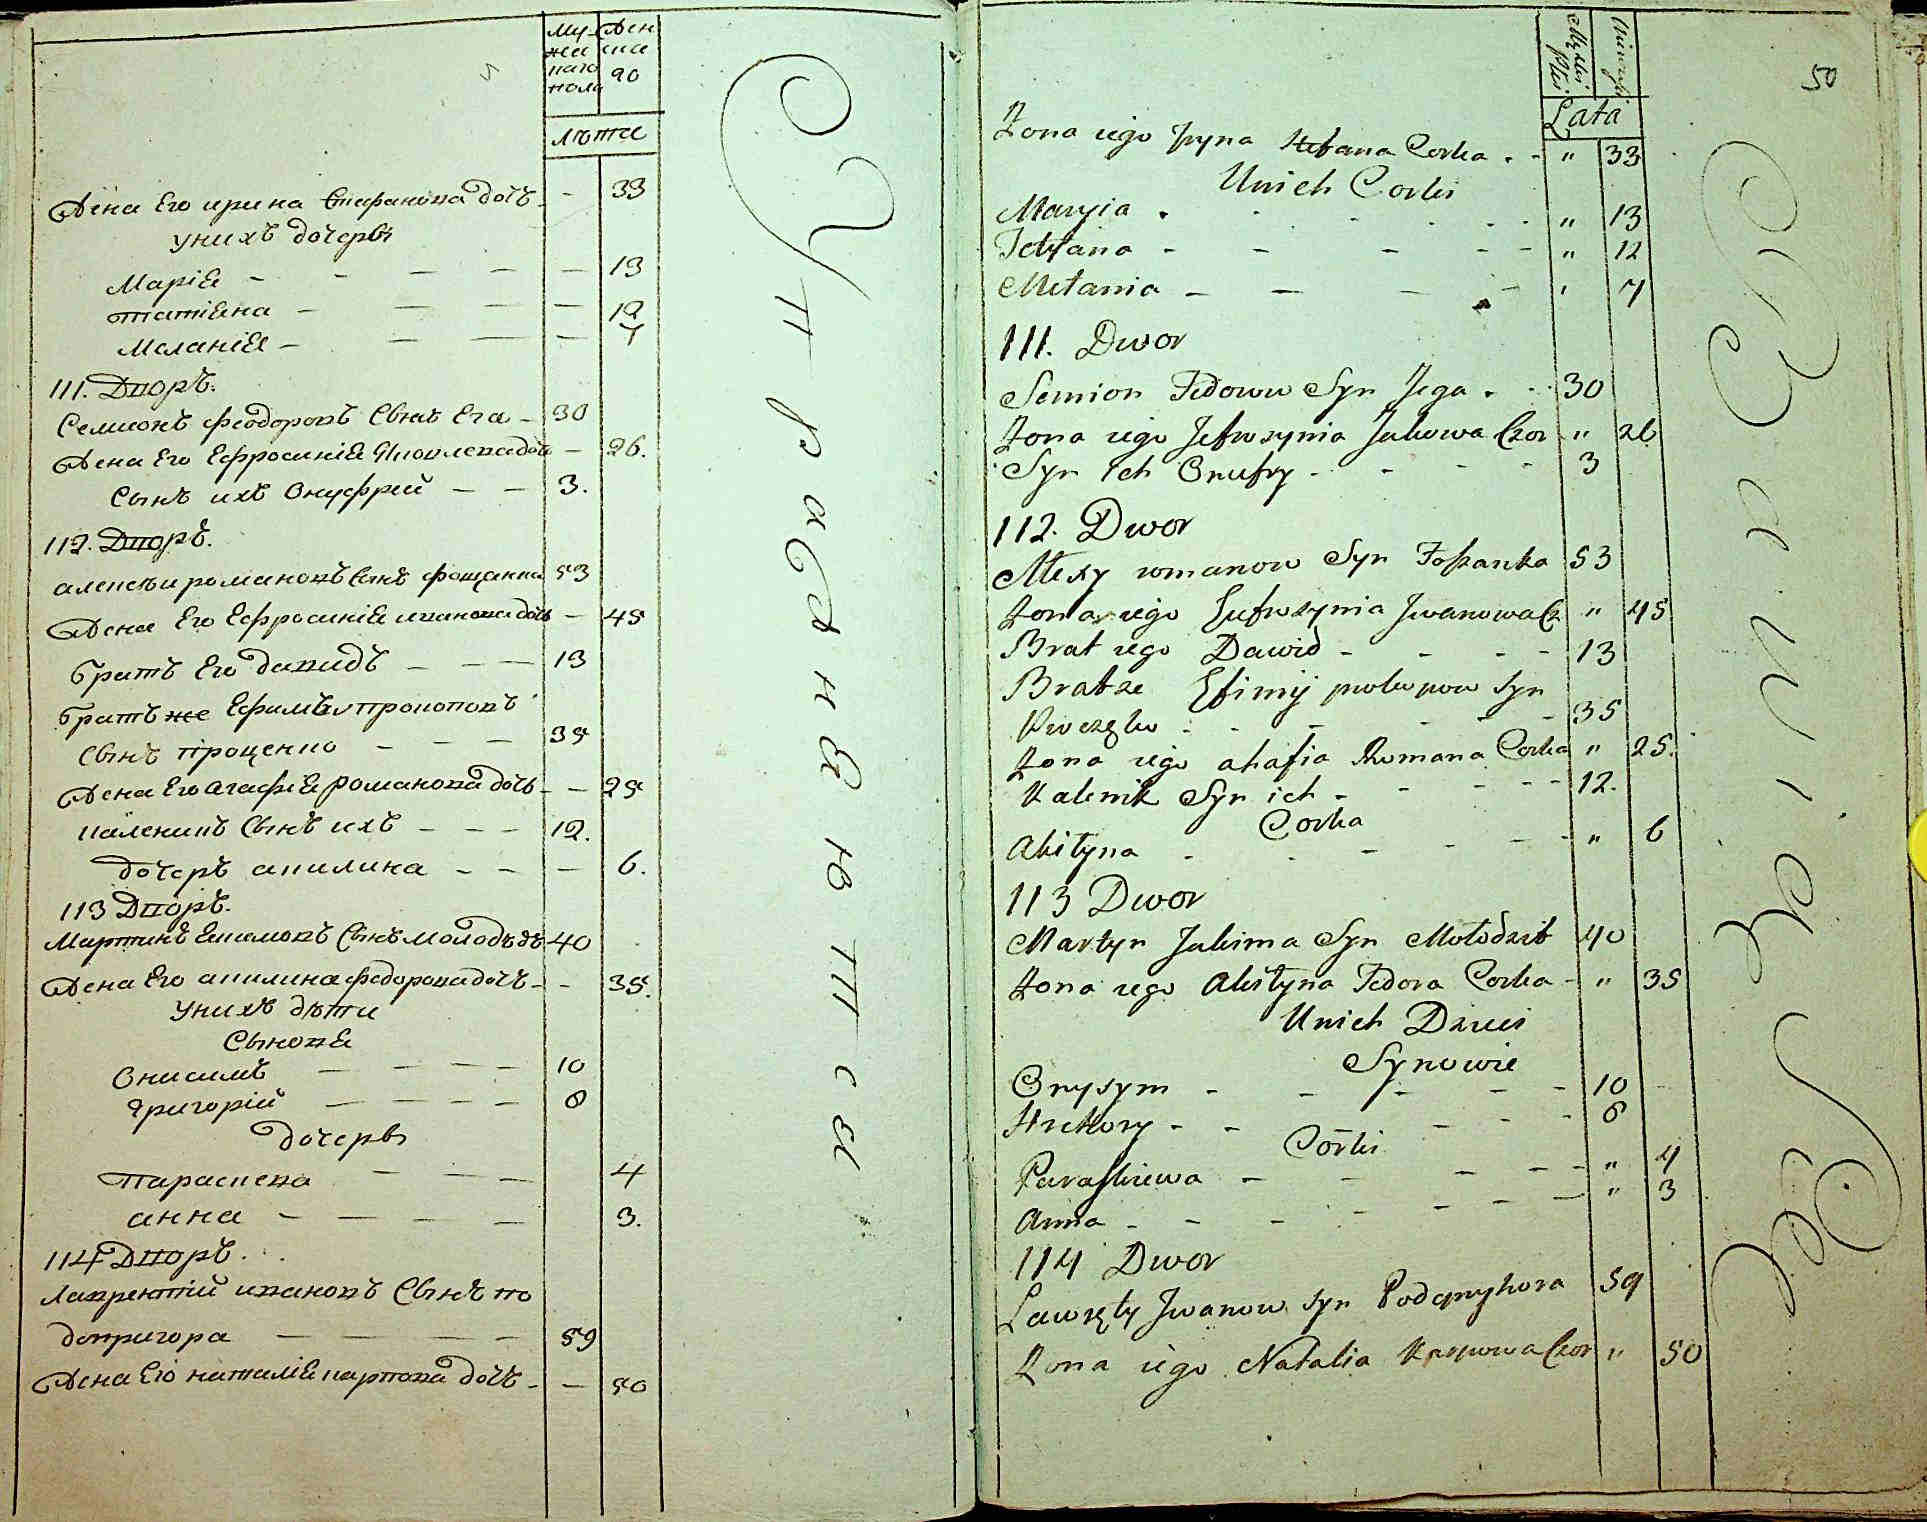 Му-
жес
каго
пола
Жен
ска
го
лѣта
Жена Его ирина Стефанова дочь - 33
уних дочеры
Марія - 13
татіяна - 12
Меланія - 7
111. Дворъ.
Семионъ феодоровъ Сынъ Ега - 30
Жена Его Ефросинія Яковлева доч - 26.
Сынъ ихъ Онуфрей - 3.
112. Дворъ.
алексѣи романовъ Сынъ фощанка 53
Жена Его Ефросинія иванова дочь - 45
братъ Его давидъ - 13
братъ же Ефимъ прокоповъ
Сынъ проценко - 35
Жена Его агафія романова дочь - 25
каленикъ Сынъ ихъ - 12.
дочеръ акилина - 6.
113 Дворъ.
Мартинъ Екимовъ Сынъ молодѣдъ 40
Жена Его акилина федорова дочь - 35.
уних дѣти
Сыновя
Онисимъ - 10
Григорій - 8
дочеры
параскева - 4
анна - 3.
114 Дворъ.
Лаврентій ивановъ Сынъ по
допригора - 59
Жена Его наталія карпова дочь - 50
У правителя
50
Męzkiei Płci
Niewieści
Lata
Zona iego Jryna Stefana Corka . - " 33
Unich Corki
Maryia . " 13
Tetiana - " 12
Mełania - " 7
111. Dwor
Semion Fedorow Syn Jega . 30
Zona iego Jefrozynia Jakowa Czor " 26
Syn Ich Onufry - 3
112. Dwor
Ałexy romanow Syn Foszanka 53
Zona iego Eufrozynia Jwanowa Cz " 45
Brat iego Dawid - 13
Bratze Efimij prokopow Syn
Procęko - 35
Zona iego ahafia Romana Corka " 25.
Kalenik Syn ich - 12.
Corka
Akiłyna - " 6
113 Dwor
Martyn Jakima Syn Mołodzid 40
Zona iego Akiłyna Fedora Corka - " 35
Unich Dzieci
Synowie
Onysym - 10
Hrehory - 8
Corki
Paraskiewa - " 4
Anna - " 3
114 Dwor
Lawręty Jwanow syn Podopryhora 59
Zona iego Natalia Karpowa Czor " 50